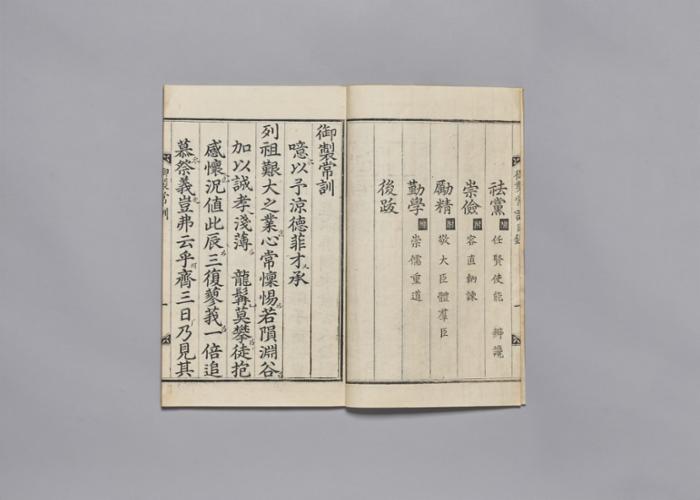 祛黨 附 任賢使能 辨讒
崇儉 附 容直納諫
勵精 附 敬大臣體羣臣
勤學 附 崇儒重道
後跋
御製常訓
噫以予涼德菲才承
列祖艱大之業心常懍惕若隕淵谷
加以誠孝淺薄 龍髯莫攀徒抱
感懷況值此辰三復蓼莪一倍追
慕祭義豈弗云乎齊三日乃見其
御製常訓 一